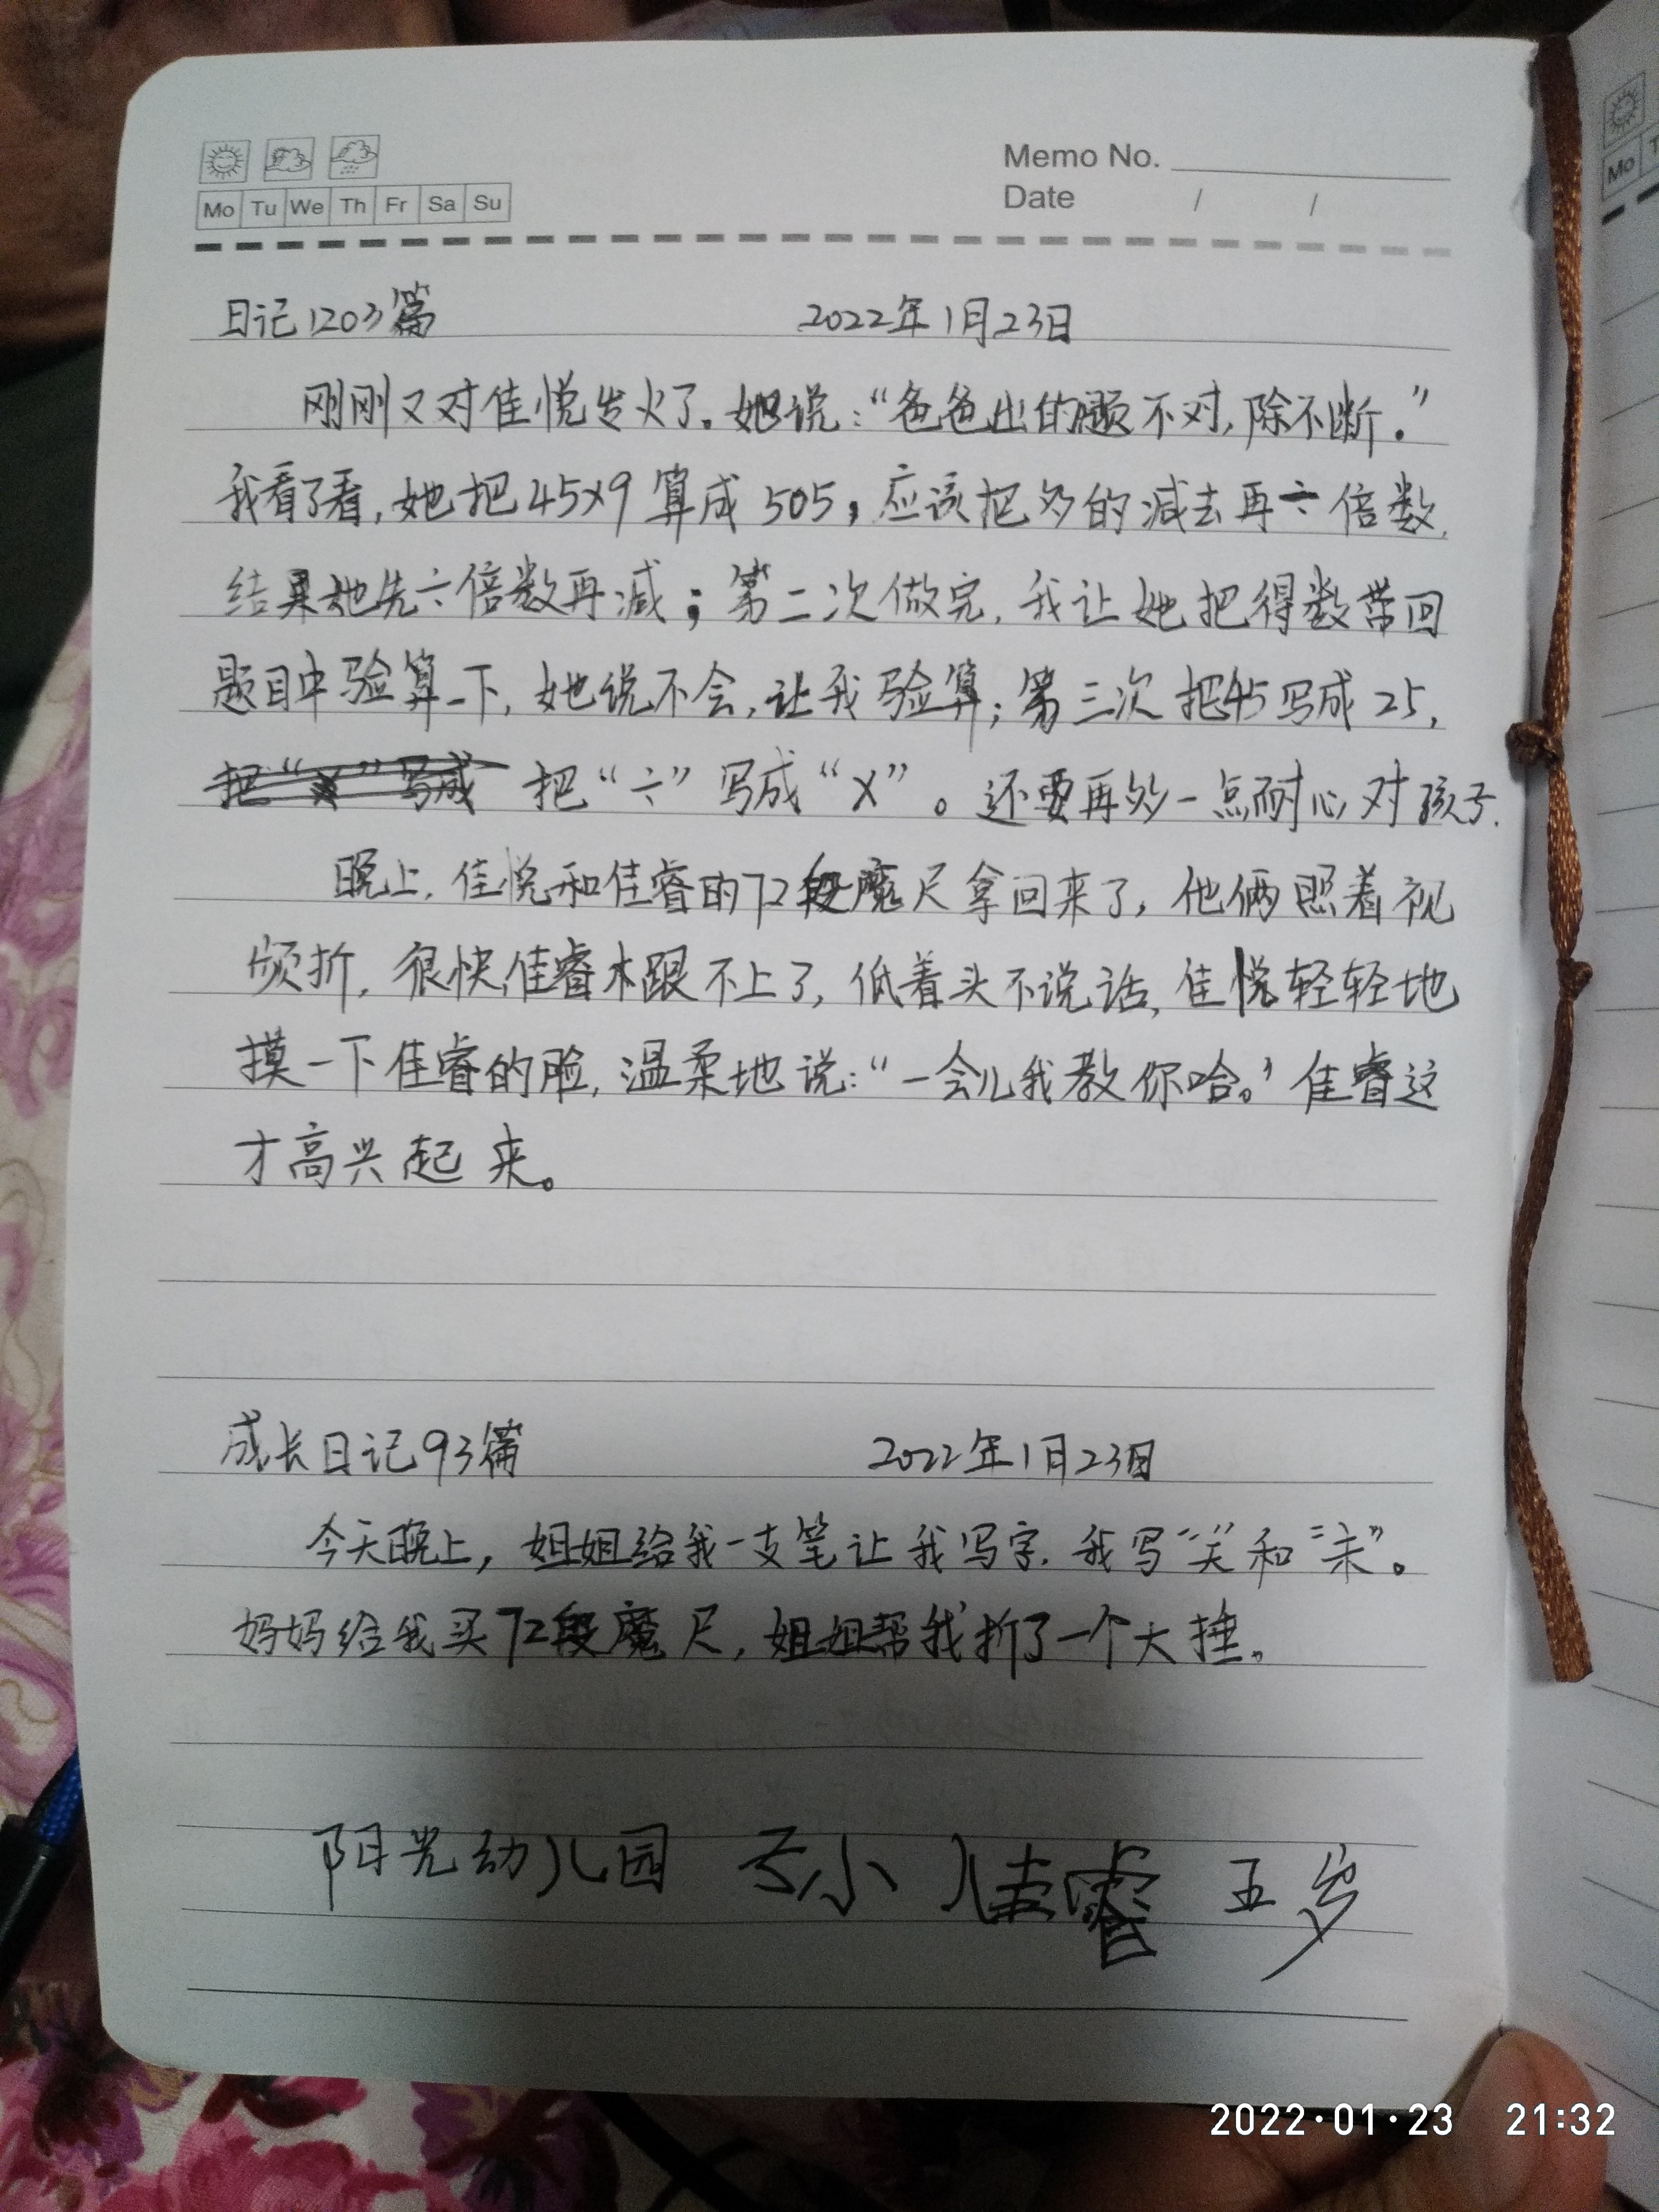 Memo No.
Mo Tu We Th Fr Sa Su
Date / /
日记1203篇 2022年1月23日
刚刚又对佳悦发火了。她说：“爸爸出的题不对，除不断.”
我看了看，她把45×9算成505，应该把多的减去再÷倍数.
结果她先÷倍数再减；第二次做完，我让她把得数带回
题目中验算一下，她说不会，让我验算；第三次把45写成25，
把“÷”写成“×”。还要再多一点耐心对孩子.
晚上，佳悦和佳睿的72段魔尺拿回来了，他俩照着视
频折，很快佳睿木跟不上了，低着头不说话，佳悦轻轻地
摸一下佳睿的脸，温柔地说：“一会儿我教你哈。”佳睿这
才高兴起来。
成长日记93篇 2022年1月23日
今天晚上，姐姐给我一支笔让我写字.我写“关”和“未”。
妈妈给我买72段魔尺，姐姐帮我折了一个大捶。
阳光幼儿园 孙佳睿 五岁
Mo
2022·01·23 21:32